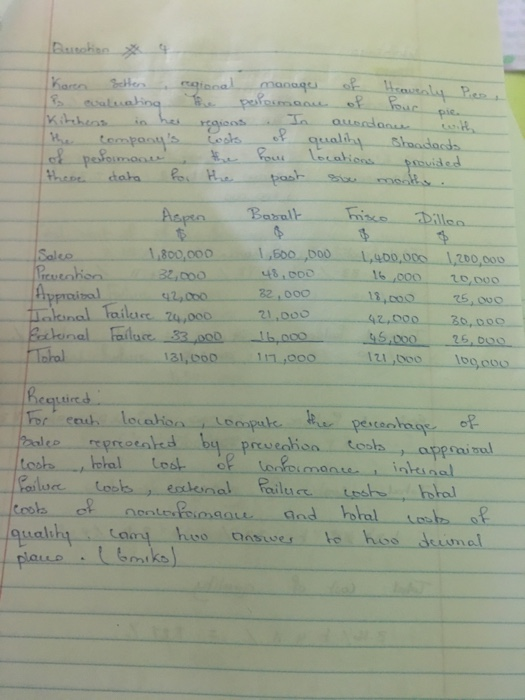 Question * 4
Karen Setten, regional manager of Heavenly Pies,
is evaluating the performance of four pie
kitchens in her regions. In accordance with
the company's costs of quality standards
of performance, the four locations provided
these data for the past six months.
Aspen Basalt Frisco Dillon
$ $ $ $
Sales 1,800,000 1,500,000 1,400,000 1,200,000
Prevention 32,000 48,000 16,000 20,000
Appraisal 42,000 32,000 18,000 25,000
Internal Failure 24,000 21,000 42,000 30,000
External Failure 33,000 16,000 45,000 25,000
Total 131,000 117,000 121,000 100,000
Required:
For each location, compute the percentage of
Sales represented by prevention costs, appraisal
costs, total cost of conformance, internal
failure costs, external failure costs, total
costs of nonconformance and total costs of
quality. Carry two answer to two decimal
places. (6mks)